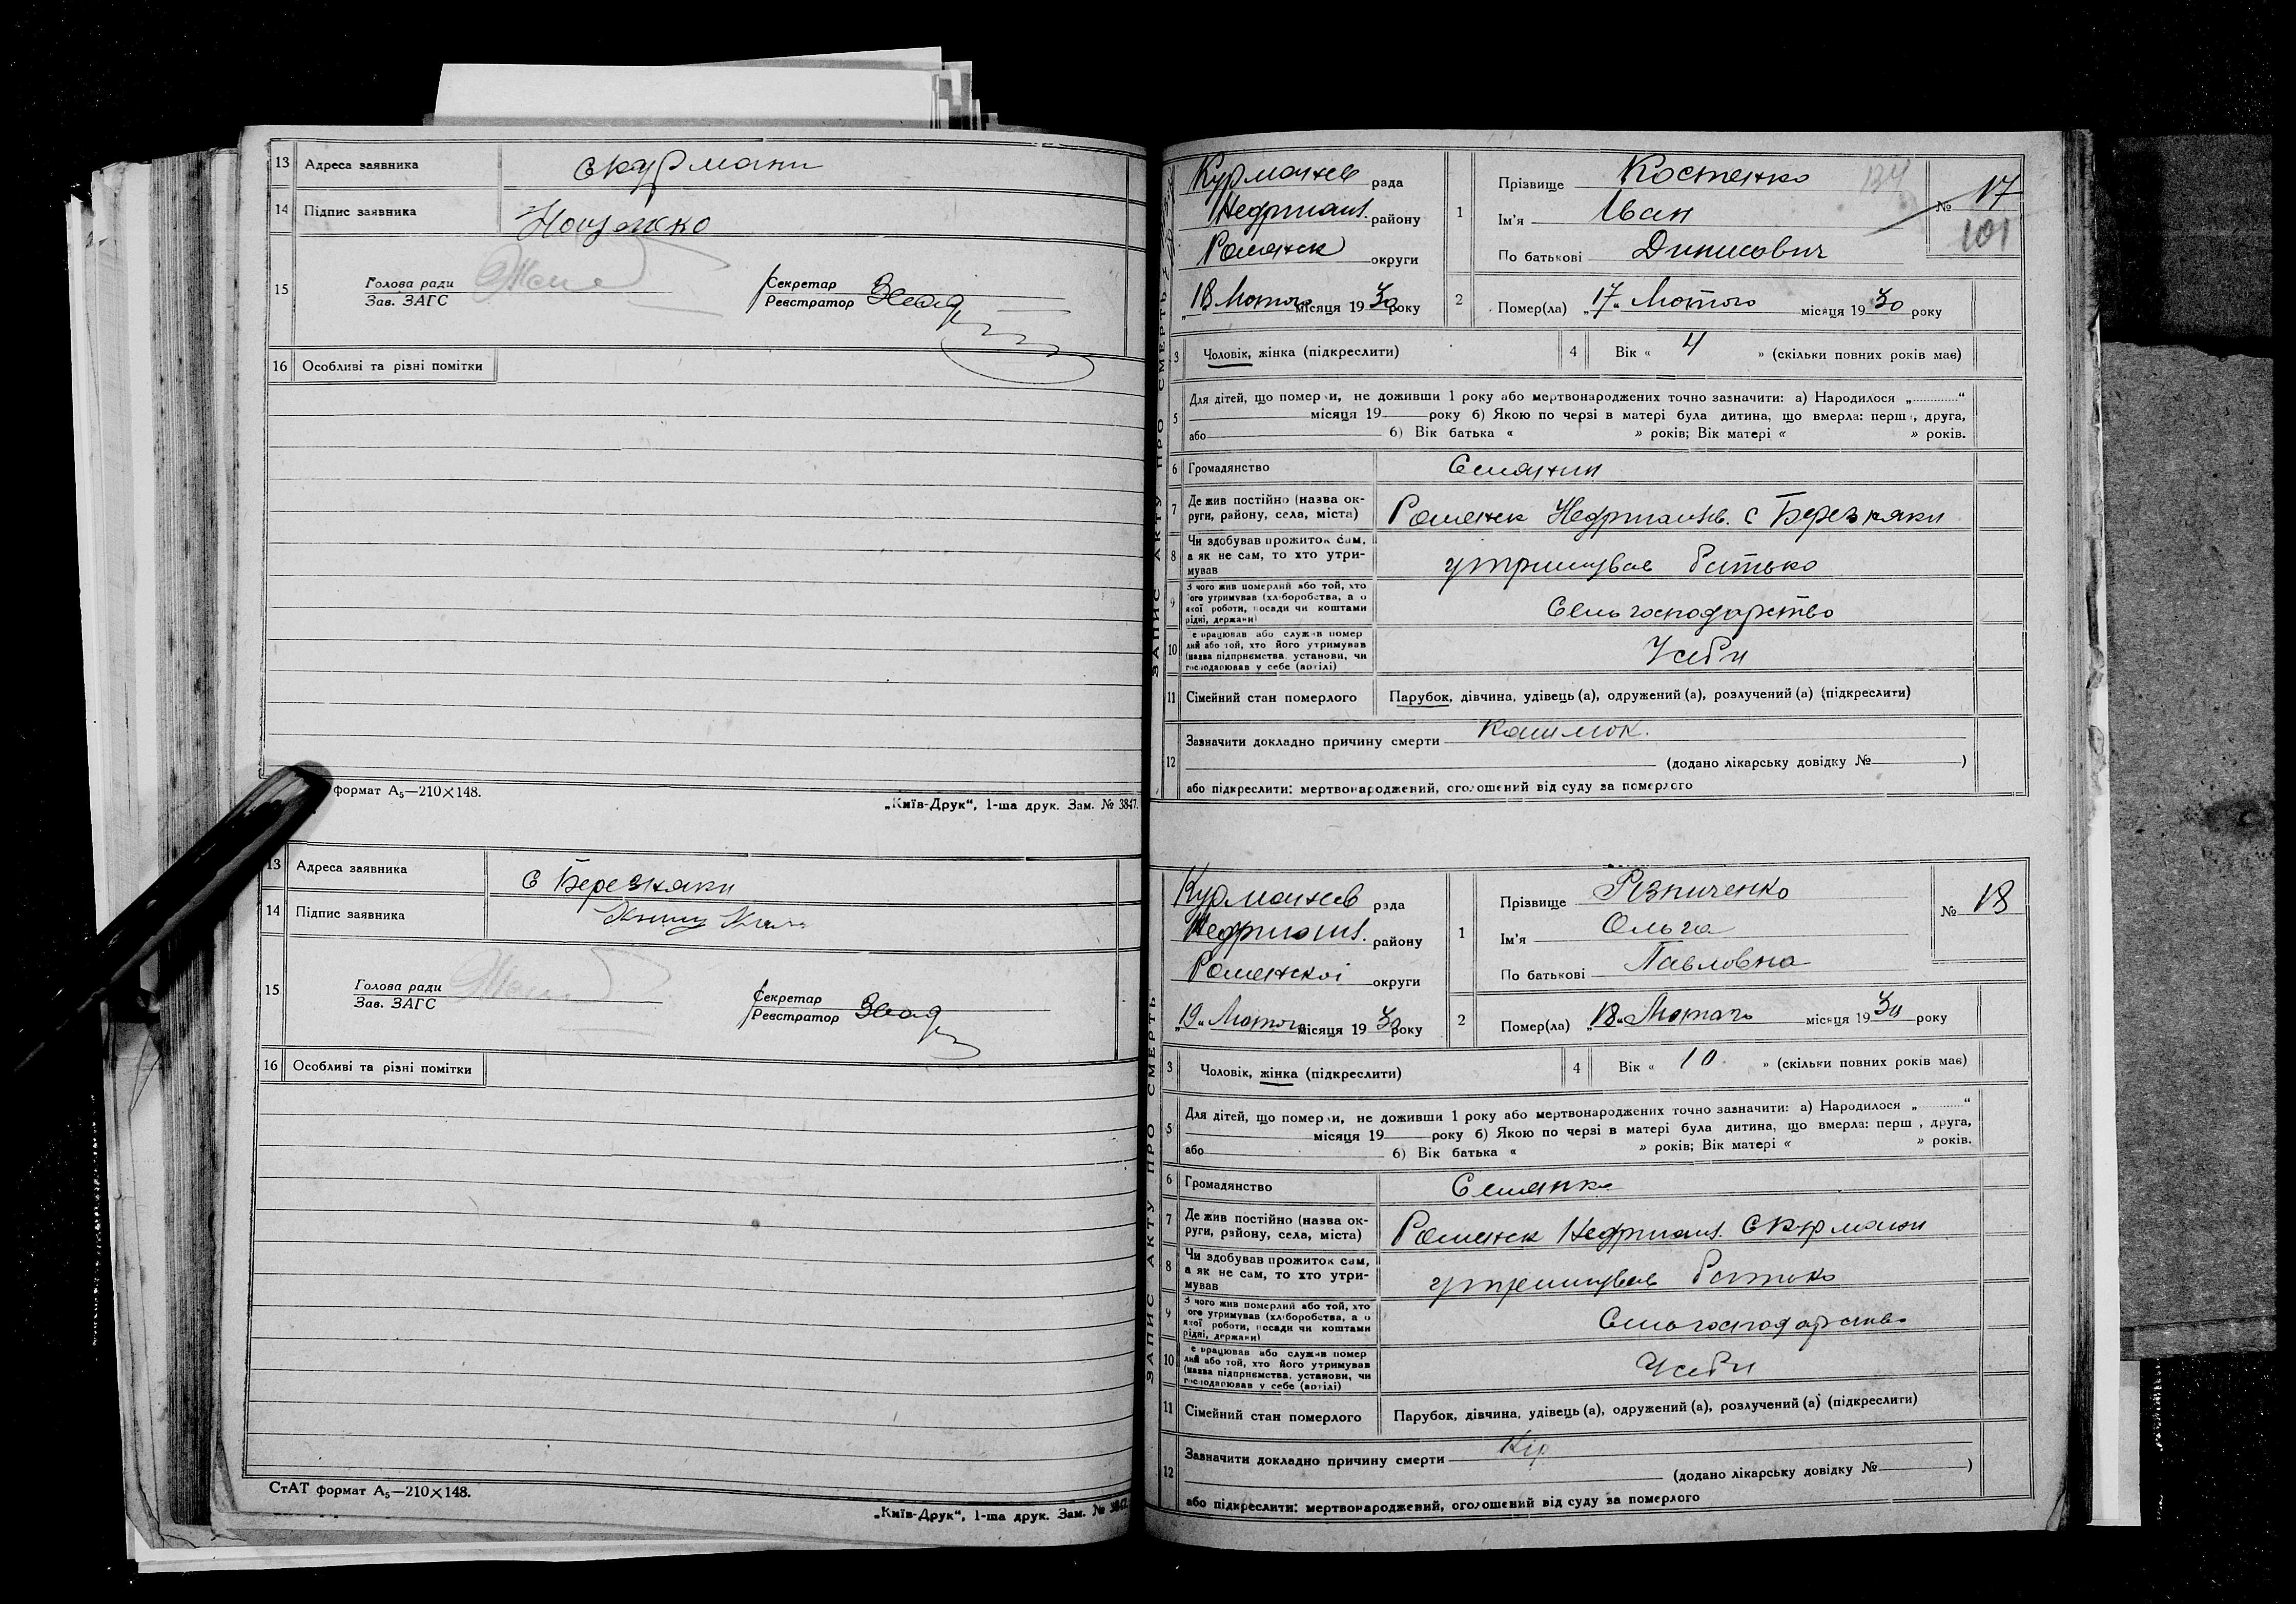 13 Адреса заявника с Курмани
14 Підпис заявника
15 Голова ради
Зав. ЗАГС
Секретар
Реєстратор
16 Особливі та різні помітки
формат А₅—210×148.
„Київ-Друк“, 1-ша друк. Зам. № 3847.
13 Адреса заявника с Березняки
14 Підпис заявника
15 Голова ради
Зав. ЗАГС
Секретар
Реєстратор
16 Особливі та різні помітки
СтАТ формат А₅—210×148.
„Київ-Друк“, 1-ша друк. Зам. № 3847.
ЗАПИС АКТУ ПРО СМЕРТЬ
Курманів рада
району
Роменск округи
„18“ Лютого місяця 1930 року
1 Прізвище Костенко
Ім'я Іван
По батькові Динисович
134
№ 17
101
2 Помер(ла) „17“ Лютого місяця 1930 року
3 Чоловік, жінка (підкреслити)
4 Вік « 4 » (скільки повних років має)
5 Для дітей, що помер и, не доживши 1 року або мертвонароджених точно зазначити: а) Народилося „ “
місяця 19 року б) Якою по черзі в матері була дитина, що вмерла: перш , друга,
або 6) Вік батька « » років; Вік матері « » років.
6 Громадянство Селянин
7 Де жив постійно (назва ок-
руги, району, села, міста) Роменск с Березняки
8 Чи здобував прожиток сам,
а як не сам, то хто утри-
мував утримував батько
9 З чого жив померлий або той, хто
ого утримував (хліборобства, а о
якої роботи, посади чи коштами
рідні, держави) Сельгосподарство
10 е працював або служив помер
лий або той, хто його утримував
(назва підприємства, установи, чи
господарював у себе (артілі) Усеби
11 Сімейний стан померлого Парубок, дівчина, удівець (а), одружений (а), розлучений (а) (підкреслити)
12 Зазначити докладно причину смерти Кашлюк.
(додано лікарську довідку № )
або підкреслити: мертвонароджений, оголошений від суду за померлого
ЗАПИС АКТУ ПРО СМЕРТЬ
Курманів рада
району
Роменскої округи
„19“ Лютого місяця 1930 року
1 Прізвище Різниченко
Ім'я Ольга
По батькові Павловна
№ 18
2 Помер(ла) „18“ Лютого місяця 1930 року
3 Чоловік, жінка (підкреслити)
4 Вік « 10 » (скільки повних років має)
5 Для дітей, що помер и, не доживши 1 року або мертвонароджених точно зазначити: а) Народилося „ “
місяця 19 року б) Якою по черзі в матері була дитина, що вмерла: перш , друга,
або 6) Вік батька « » років; Вік матері « » років.
6 Громадянство Селянка
7 Де жив постійно (назва ок-
руги, району, села, міста) Роменск с Курмани
8 Чи здобував прожиток сам,
а як не сам, то хто утри-
мував утримував батько
9 З чого жив померлий або той, хто
ого утримував (хліборобства, а о
якої роботи, посади чи коштами
рідні, держави) Сельгосподарство
10 е працював або служив помер
лий або той, хто його утримував
(назва підприємства, установи, чи
господарював у себе (артілі) Усеби
11 Сімейний стан померлого Парубок, дівчина, удівець (а), одружений (а), розлучений (а) (підкреслити)
12 Зазначити докладно причину смерти Кір
(додано лікарську довідку № )
або підкреслити: мертвонароджений, оголошений від суду за померлого